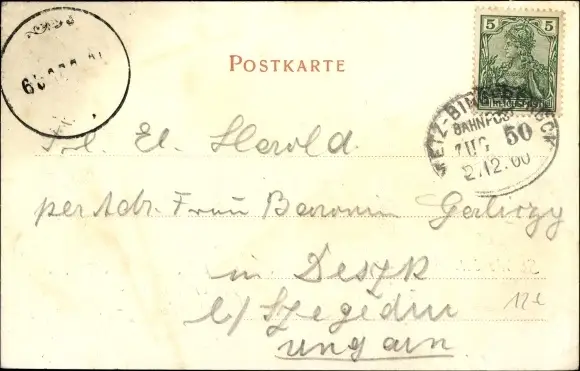 POSTKARTE
5 5
METZ-BINGERBRÜCK
BAHNPOST
ZUG 50
2.12.00
Frl. El. Herold
per Adr. Frau Baronin Gerliczy
in Deszk
b/ Szegedin
Ungarn
12 €